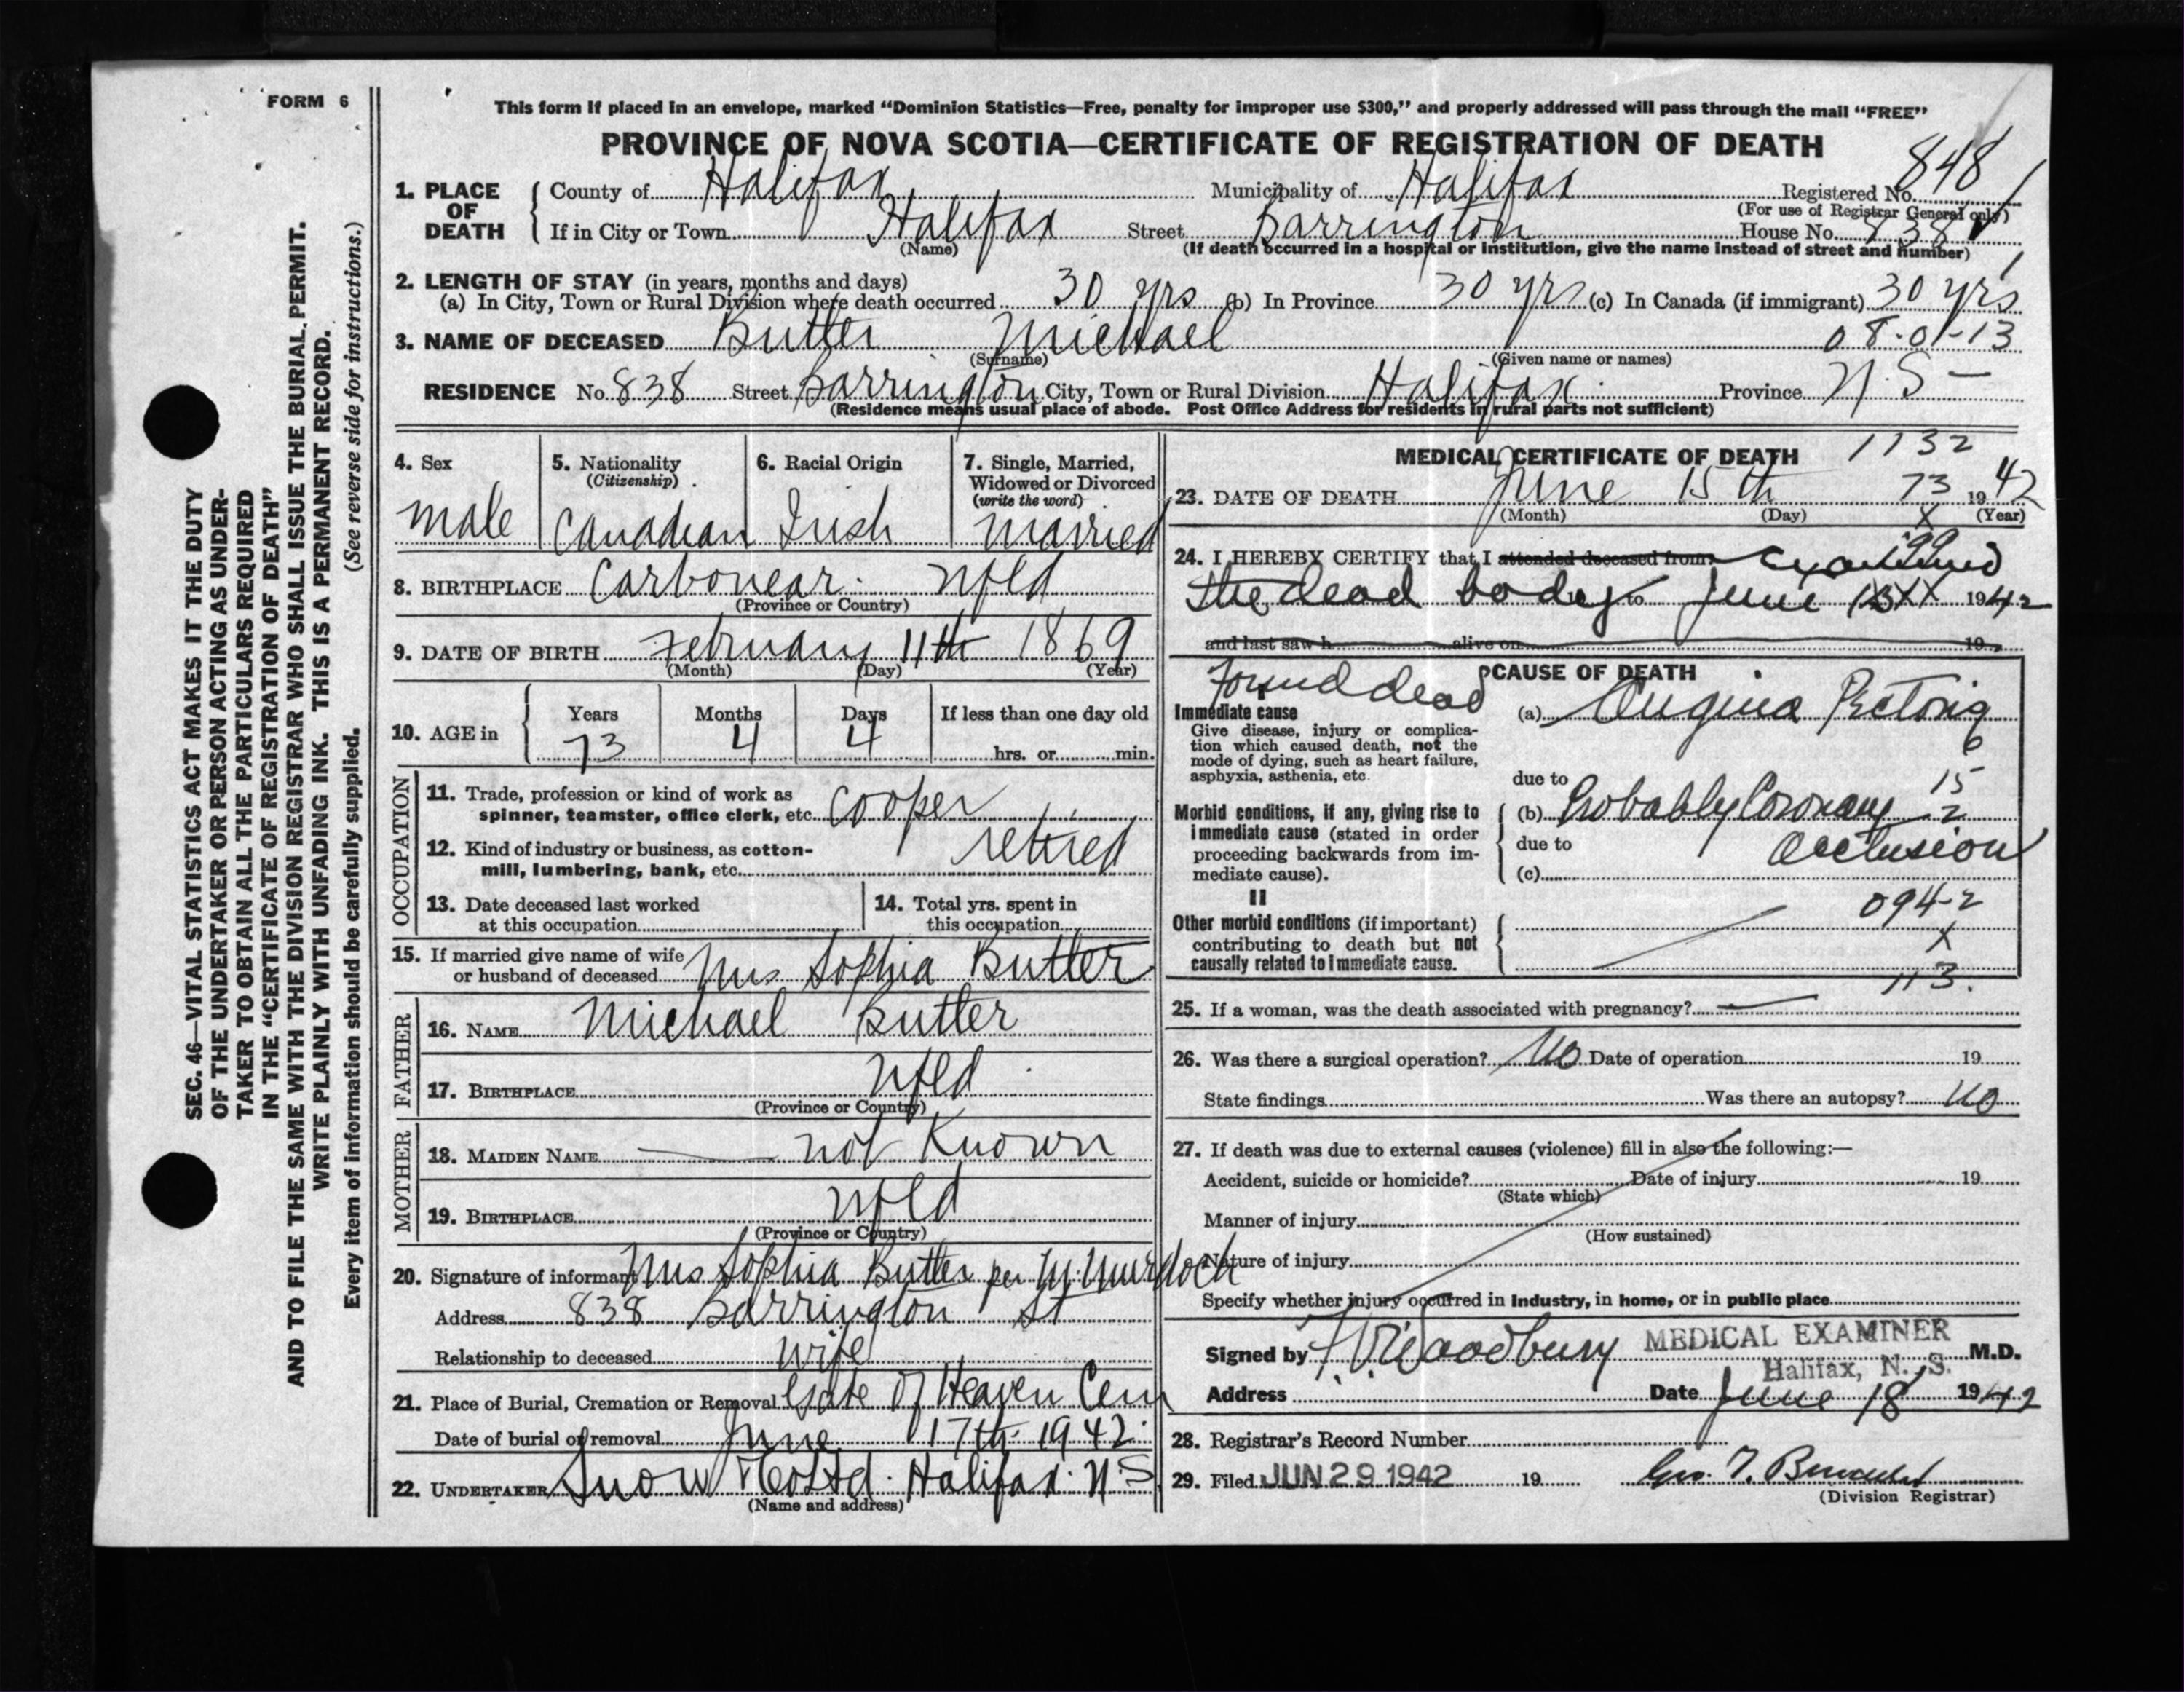 FORM 6
This form if placed in an envelope, marked “Dominion Statistics—Free, penalty for improper use $300,” and properly addressed will pass through the mail “FREE”
PROVINCE OF NOVA SCOTIA—CERTIFICATE OF REGISTRATION OF DEATH
848
1. PLACE OF DEATH { County of Halifax Municipality of Halifax Registered No.
(For use of Registrar General only)
If in City or Town Halifax Street Barrington House No. 838
(Name) (If death occurred in a hospital or institution, give the name instead of street and number)
2. LENGTH OF STAY (in years, months and days)
(a) In City, Town or Rural Division where death occurred 30 yrs (b) In Province 30 yrs (c) In Canada (if immigrant) 30 yrs
3. NAME OF DECEASED Butler Michael 08-01-13
(Surname) (Given name or names)
RESIDENCE No. 838 Street Barrington City, Town or Rural Division Halifax Province N.S—
(Residence means usual place of abode. Post Office Address for residents in rural parts not sufficient)
4. Sex 5. Nationality (Citizenship) 6. Racial Origin 7. Single, Married, Widowed or Divorced (write the word)
male Canadian Irish married
8. BIRTHPLACE Carbonear. Nfld
(Province or Country)
9. DATE OF BIRTH February 11th 1869
(Month) (Day) (Year)
10. AGE in { Years Months Days If less than one day old
73 4 4 hrs. or min.
OCCUPATION
11. Trade, profession or kind of work as spinner, teamster, office clerk, etc. Cooper
12. Kind of industry or business, as cotton-mill, lumbering, bank, etc. retired
13. Date deceased last worked at this occupation
14. Total yrs. spent in this occupation
15. If married give name of wife or husband of deceased Mrs Sophia Butler
FATHER
16. NAME Michael Butler
17. BIRTHPLACE Nfld
(Province or Country)
MOTHER
18. MAIDEN NAME not Known
19. BIRTHPLACE Nfld
(Province or Country)
20. Signature of informant Mrs Sophia Butler per M Murdoch
Address 838 Barrington St
Relationship to deceased wife
21. Place of Burial, Cremation or Removal Gate of Heaven Cem
Date of burial or removal June 17th 1942
22. UNDERTAKER Snow & Co Ltd. Halifax. N.S
(Name and address)
MEDICAL CERTIFICATE OF DEATH 1132
23. DATE OF DEATH June 15th 73 1942
(Month) (Day) X (Year)
99
24. I HEREBY CERTIFY that I attended deceased from examined
the dead body to June 1942
and last saw h alive on 19
CAUSE OF DEATH
Found dead
Immediate cause (a) Angina Pectoris
Give disease, injury or complication which caused death, not the mode of dying, such as heart failure, asphyxia, asthenia, etc.
6
15
2
due to
Morbid conditions, if any, giving rise to immediate cause (stated in order proceeding backwards from immediate cause).
(b) Probably Coronary
due to Occlusion
(c)
II
094-2
X
Other morbid conditions (if important) contributing to death but not causally related to immediate cause.
113.
25. If a woman, was the death associated with pregnancy? —
26. Was there a surgical operation? No Date of operation 19
State findings Was there an autopsy? no
27. If death was due to external causes (violence) fill in also the following:—
Accident, suicide or homicide? Date of injury 19
(State which)
Manner of injury
(How sustained)
Nature of injury
Specify whether injury occurred in industry, in home, or in public place
Signed by Woodbury MEDICAL EXAMINER M.D.
Halifax, N. S.
Address Date June 18 1942
28. Registrar’s Record Number
29. Filed JUN 29 1942 19 Geo. T.
(Division Registrar)
SEC. 46—VITAL STATISTICS ACT MAKES IT THE DUTY
OF THE UNDERTAKER OR PERSON ACTING AS UNDER-
TAKER TO OBTAIN ALL THE PARTICULARS REQUIRED
IN THE “CERTIFICATE OF REGISTRATION OF DEATH”
AND TO FILE THE SAME WITH THE DIVISION REGISTRAR WHO SHALL ISSUE THE BURIAL PERMIT.
WRITE PLAINLY WITH UNFADING INK. THIS IS A PERMANENT RECORD.
Every item of information should be carefully supplied. (See reverse side for instructions.)